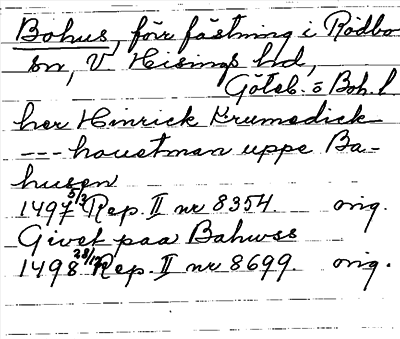 Bohus, förr fästning i Rödbo
sn, V. Hisings hd,
Göteb. o Boh. l
her Hinrick Krumedick
--- houetman uppe Ba-
husen
1497 5/3 Rep. II nr 8354. orig.
Givet paa Bahwss
1498 28/12 Rep. II nr 8699. orig.